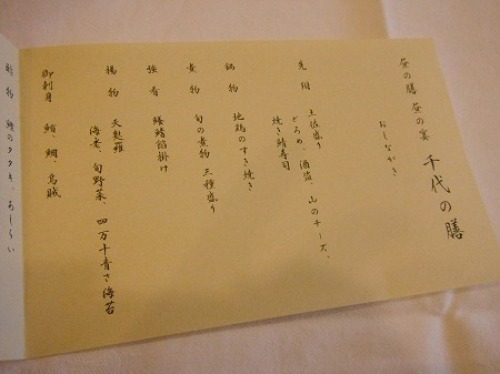 昼の膳 昼の宴 千代の膳
おしながき
先附 土佐盛り
どろめ、酒盗、山のチーズ、
焼き鯖寿司
鍋物 地鶏のすき焼き
煮物 旬の煮物 三種盛り
強肴 鰹餡掛け
揚物 天麩羅
海老、旬野菜、四万十青さ海苔
御刺身 鮪、鯛、烏賊
酢物 鰹のタタキ、あしらい